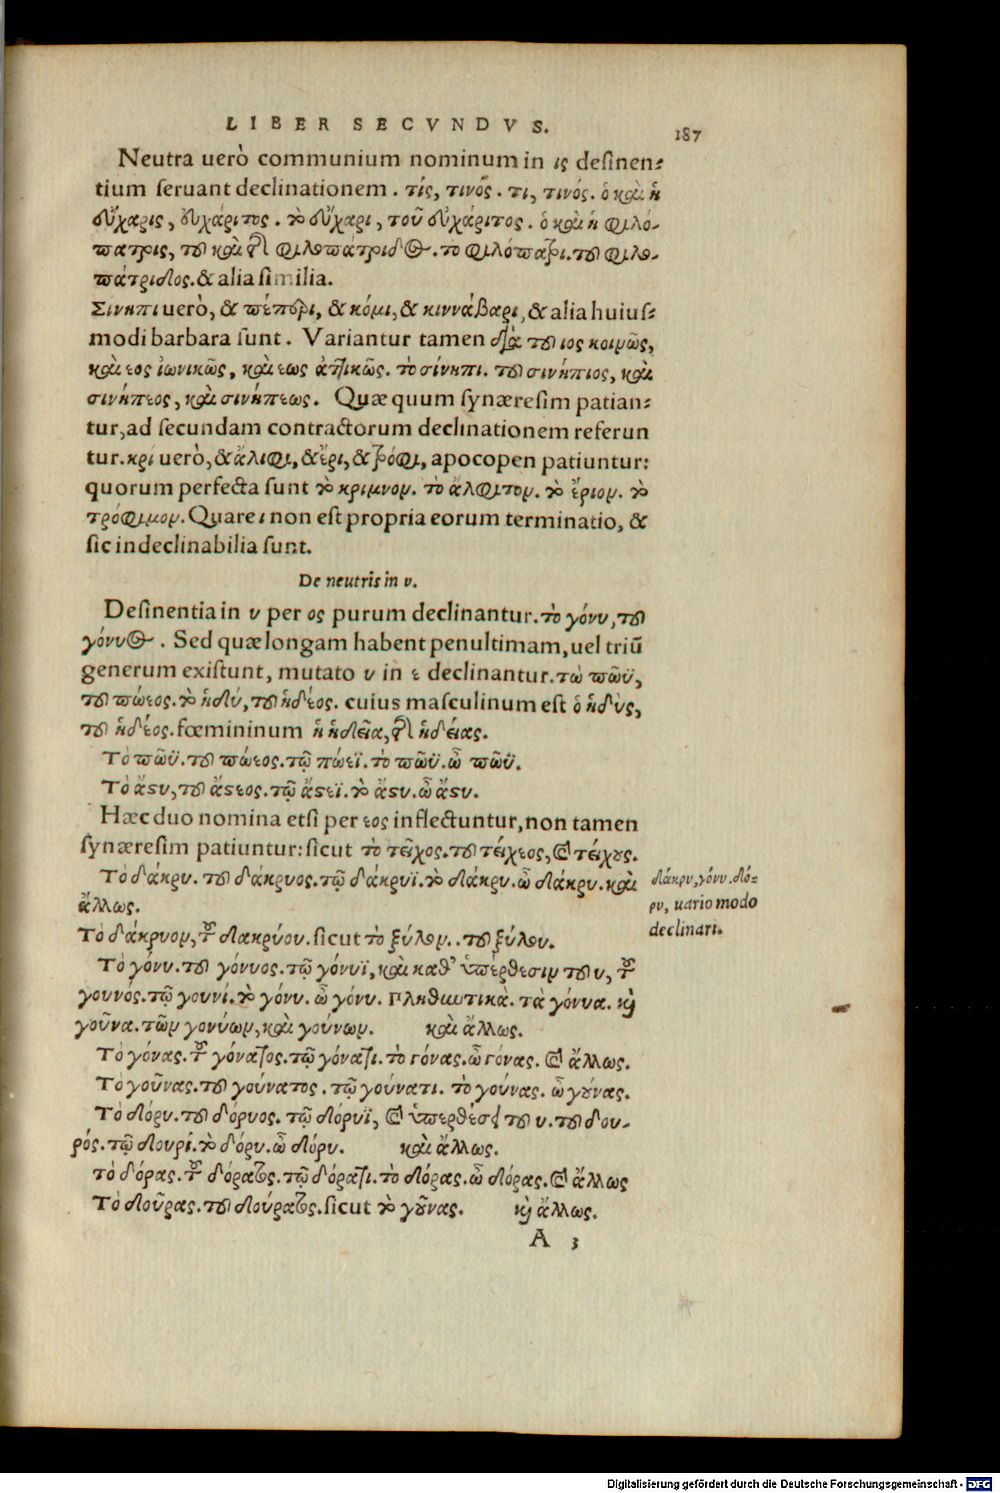 LIBER SECVNDVS.
187
Neutra uerò communium nominum in ις desinen-
tium seruant declinationem. τίς, τινός. τι, τινός. ὁ καὶ ἡ
εὔχαρις, εὐχάριτος. τὸ εὔχαρι, τοῦ εὐχάριτος. ὁ καὶ ἡ φιλό-
πατρις, τοῦ καὶ τῆς φιλοπάτριδος. το φιλόπατρι. τοῦ φιλο-
πάτριδος. & alia similia.
Σινηπι uerò, & πέπερι, & κόμι, & κιννάβαρι, & alia huius-
modi barbara sunt. Variantur tamen διὰ τοῦ ιος κοινῶς,
καὶ εος ἰωνικῶς, καὶ εως ἀττικῶς. τὸ σίνηπι. τοῦ σινήπιος, καὶ
σινήπεος, καὶ σινήπεως. Quæ quum synæresim patian-
tur, ad secundam contractorum declinationem referun
tur. κρί uerò, & ἄλιφι, & ἔρι, & τρόφι, apocopen patiuntur:
quorum perfecta sunt τὸ κριμνον. τὸ ἄλφιτον. τὸ ἔριον. τὸ
τρόφιμον. Quare ι non est propria eorum terminatio, &
sic indeclinabilia sunt.
De neutris in υ.
Desinentia in υ per ος purum declinantur. τὸ γόνυ, τοῦ
γόνυος. Sed quæ longam habent penultimam, uel triū
generum existunt, mutato υ in ε declinantur. τὼ πῶϋ,
τοῦ πώεος. τὸ ἡδύ, τοῦ ἡδέος. cuius masculinum est ὁ ἡδὺς,
τοῦ ἡδέος. fœmininum ἡ ἡδεῖα, τῆς ἡδείας.
Τὸ πῶϋ. τοῦ πώεος. τῷ πώεϊ. τὸ πῶϋ. ὦ πῶϋ.
Τὸ ἄστυ, τοῦ ἄστεος. τῷ ἄστεϊ. τὸ ἄστυ. ὦ ἄστυ.
Hæc duo nomina etsi per εος inflectuntur, non tamen
synæresim patiuntur: sicut τὸ τεῖχος. τοῦ τείχεος, & τείχους.
Τὸ δάκρυ. τοῦ δάκρυος. τῷ δάκρυϊ. τὸ δάκρυ. ὦ δάκρυ. καὶ
ἄλλως.
δάκρυ, γόνυ. δό-
ρυ, uario modo
declinari.
Τὸ δάκρυον, τοῦ δακρύου. sicut τὸ ξύλον.. τοῦ ξύλου.
Τὸ γόνυ. τοῦ γόνυος. τῷ γόνυϊ, καὶ καθ' ὑπέρθεσιν τοῦ υ, τοῦ
γουνός. τῷ γουνί. τὸ γόνυ. ὦ γόνυ. Πληθωτικὰ. τὰ γόνυα. καὶ
γοῦνα. τῶν γονύων, καὶ γούνων. καὶ ἄλλως.
Τὸ γόνας. τοῦ γόνατος. τῷ γόνατι. τὸ γόνας. ὦ γόνας. & ἄλλως.
Τὸ γοῦνας. τοῦ γούνατος. τῷ γούνατι. τὸ γούνας. ὦ γούνας.
Τὸ δόρυ. τοῦ δόρυος. τῷ δόρυϊ, & ὑπερθέσει τοῦ υ. τοῦ δου-
ρός. τῷ δουρί. τὸ δόρυ. ὦ δόρυ. καὶ ἄλλως.
τὸ δόρας. τοῦ δόρατος. τῷ δόρατι. τὸ δόρας. ὦ δόρας. & ἄλλως
Τὸ δοῦρας. τοῦ δούρατος. sicut τὸ γοῦνας. καὶ ἄλλως.
A 3
Digitalisierung gefördert durch die Deutsche Forschungsgemeinschaft - DFG